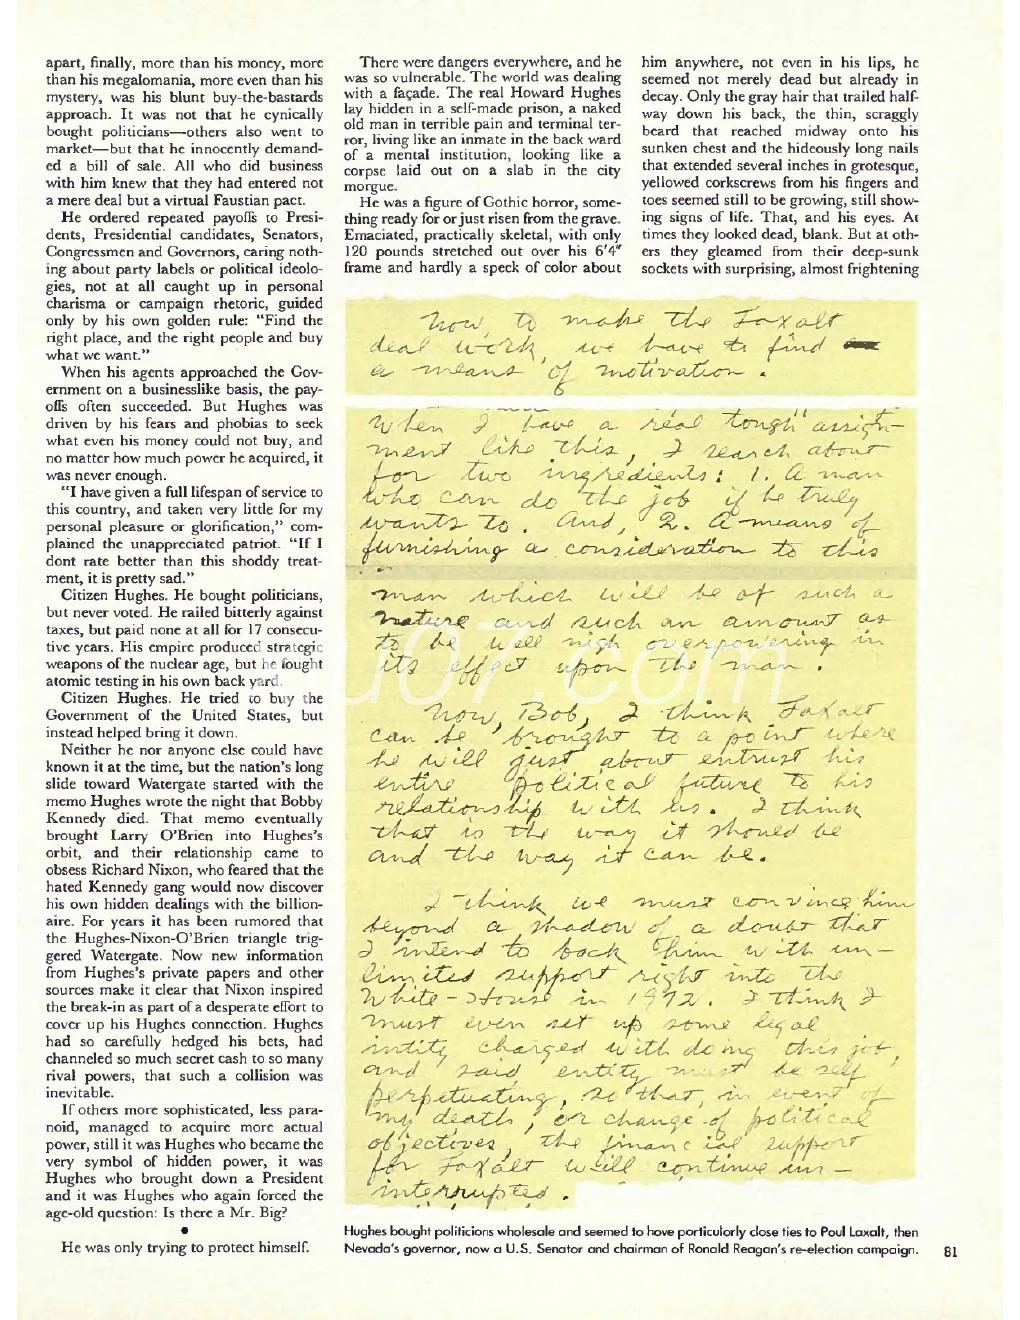 apart, finally, more than his money, more
than his megalomania, more even than his
mystery, was his blunt buy-the-bastards
approach. It was not that he cynically
bought politicians—others also went to
market—but that he innocently demand-
ed a bill of sale. All who did business
with him knew that they had entered not
a mere deal but a virtual Faustian pact.
He ordered repeated payoffs to Presi-
dents, Presidential candidates, Senators,
Congressmen and Governors, caring noth-
ing about party labels or political ideolo-
gies, not at all caught up in personal
charisma or campaign rhetoric, guided
only by his own golden rule: “Find the
right place, and the right people and buy
what we want.”
When his agents approached the Gov-
ernment on a businesslike basis, the pay-
offs often succeeded. But Hughes was
driven by his fears and phobias to seek
what even his money could not buy, and
no matter how much power he acquired, it
was never enough.
“I have given a full lifespan of service to
this country, and taken very little for my
personal pleasure or glorification,” com-
plained the unappreciated patriot. “If I
dont rate better than this shoddy treat-
ment, it is pretty sad.”
Citizen Hughes. He bought politicians,
but never voted. He railed bitterly against
taxes, but paid none at all for 17 consecu-
tive years. His empire produced strategic
weapons of the nuclear age, but he fought
atomic testing in his own back yard.
Citizen Hughes. He tried to buy the
Government of the United States, but
instead helped bring it down.
Neither he nor anyone else could have
known it at the time, but the nation’s long
slide toward Watergate started with the
memo Hughes wrote the night that Bobby
Kennedy died. That memo eventually
brought Larry O’Brien into Hughes’s
orbit, and their relationship came to
obsess Richard Nixon, who feared that the
hated Kennedy gang would now discover
his own hidden dealings with the billion-
aire. For years it has been rumored that
the Hughes-Nixon-O’Brien triangle trig-
gered Watergate. Now new information
from Hughes’s private papers and other
sources make it clear that Nixon inspired
the break-in as part of a desperate effort to
cover up his Hughes connection. Hughes
had so carefully hedged his bets, had
channeled so much secret cash to so many
rival powers, that such a collision was
inevitable.
If others more sophisticated, less para-
noid, managed to acquire more actual
power, still it was Hughes who became the
very symbol of hidden power, it was
Hughes who brought down a President
and it was Hughes who again forced the
age-old question: Is there a Mr. Big?
•
He was only trying to protect himself.
There were dangers everywhere, and he
was so vulnerable. The world was dealing
with a façade. The real Howard Hughes
lay hidden in a self-made prison, a naked
old man in terrible pain and terminal ter-
ror, living like an inmate in the back ward
of a mental institution, looking like a
corpse laid out on a slab in the city
morgue.
He was a figure of Gothic horror, some-
thing ready for or just risen from the grave.
Emaciated, practically skeletal, with only
120 pounds stretched out over his 6'4"
frame and hardly a speck of color about
him anywhere, not even in his lips, he
seemed not merely dead but already in
decay. Only the gray hair that trailed half-
way down his back, the thin, scraggly
beard that reached midway onto his
sunken chest and the hideously long nails
that extended several inches in grotesque,
yellowed corkscrews from his fingers and
toes seemed still to be growing, still show-
ing signs of life. That, and his eyes. At
times they looked dead, blank. But at oth-
ers they gleamed from their deep-sunk
sockets with surprising, almost frightening
Now, to make the Laxalt
deal work, we have to find
a means of motivation.
When I have a real "tough" assign-
ment like this, I search about
for two ingredients: 1. A man
who can do the job if he truly
wants to. And, 2. A means of
furnishing a consideration to this
man which will be of such a
nature and such an amount as
to be well nigh overpowering in
its effect upon the man.
Now, Bob, I think Laxalt
can be brought to a point where
he will just about entrust his
entire political future to his
relationship with us. I think
that is the way it should be
and the way it can be.
I think we must convince him
beyond a shadow of a doubt that
I intend to back him with un-
limited support right into the
White-House in 1972. I think I
must even set up some legal
intity charged with doing this job,
and said entity must be self
perpetuating, so that, in event of
my death, or change of political
objectives, the financial support
for Laxalt will continue un-
interrupted.
Hughes bought politicions wholesale and seemed to hove porticulorly close ties to Poul Laxalt, then
Nevada’s governor, now a U.S. Senator and chairman of Ronald Reagan’s re-election campaign.
81